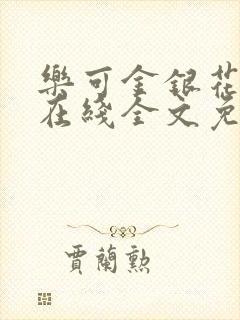 樂可金銀花
在綫全文免
賈蘭勲